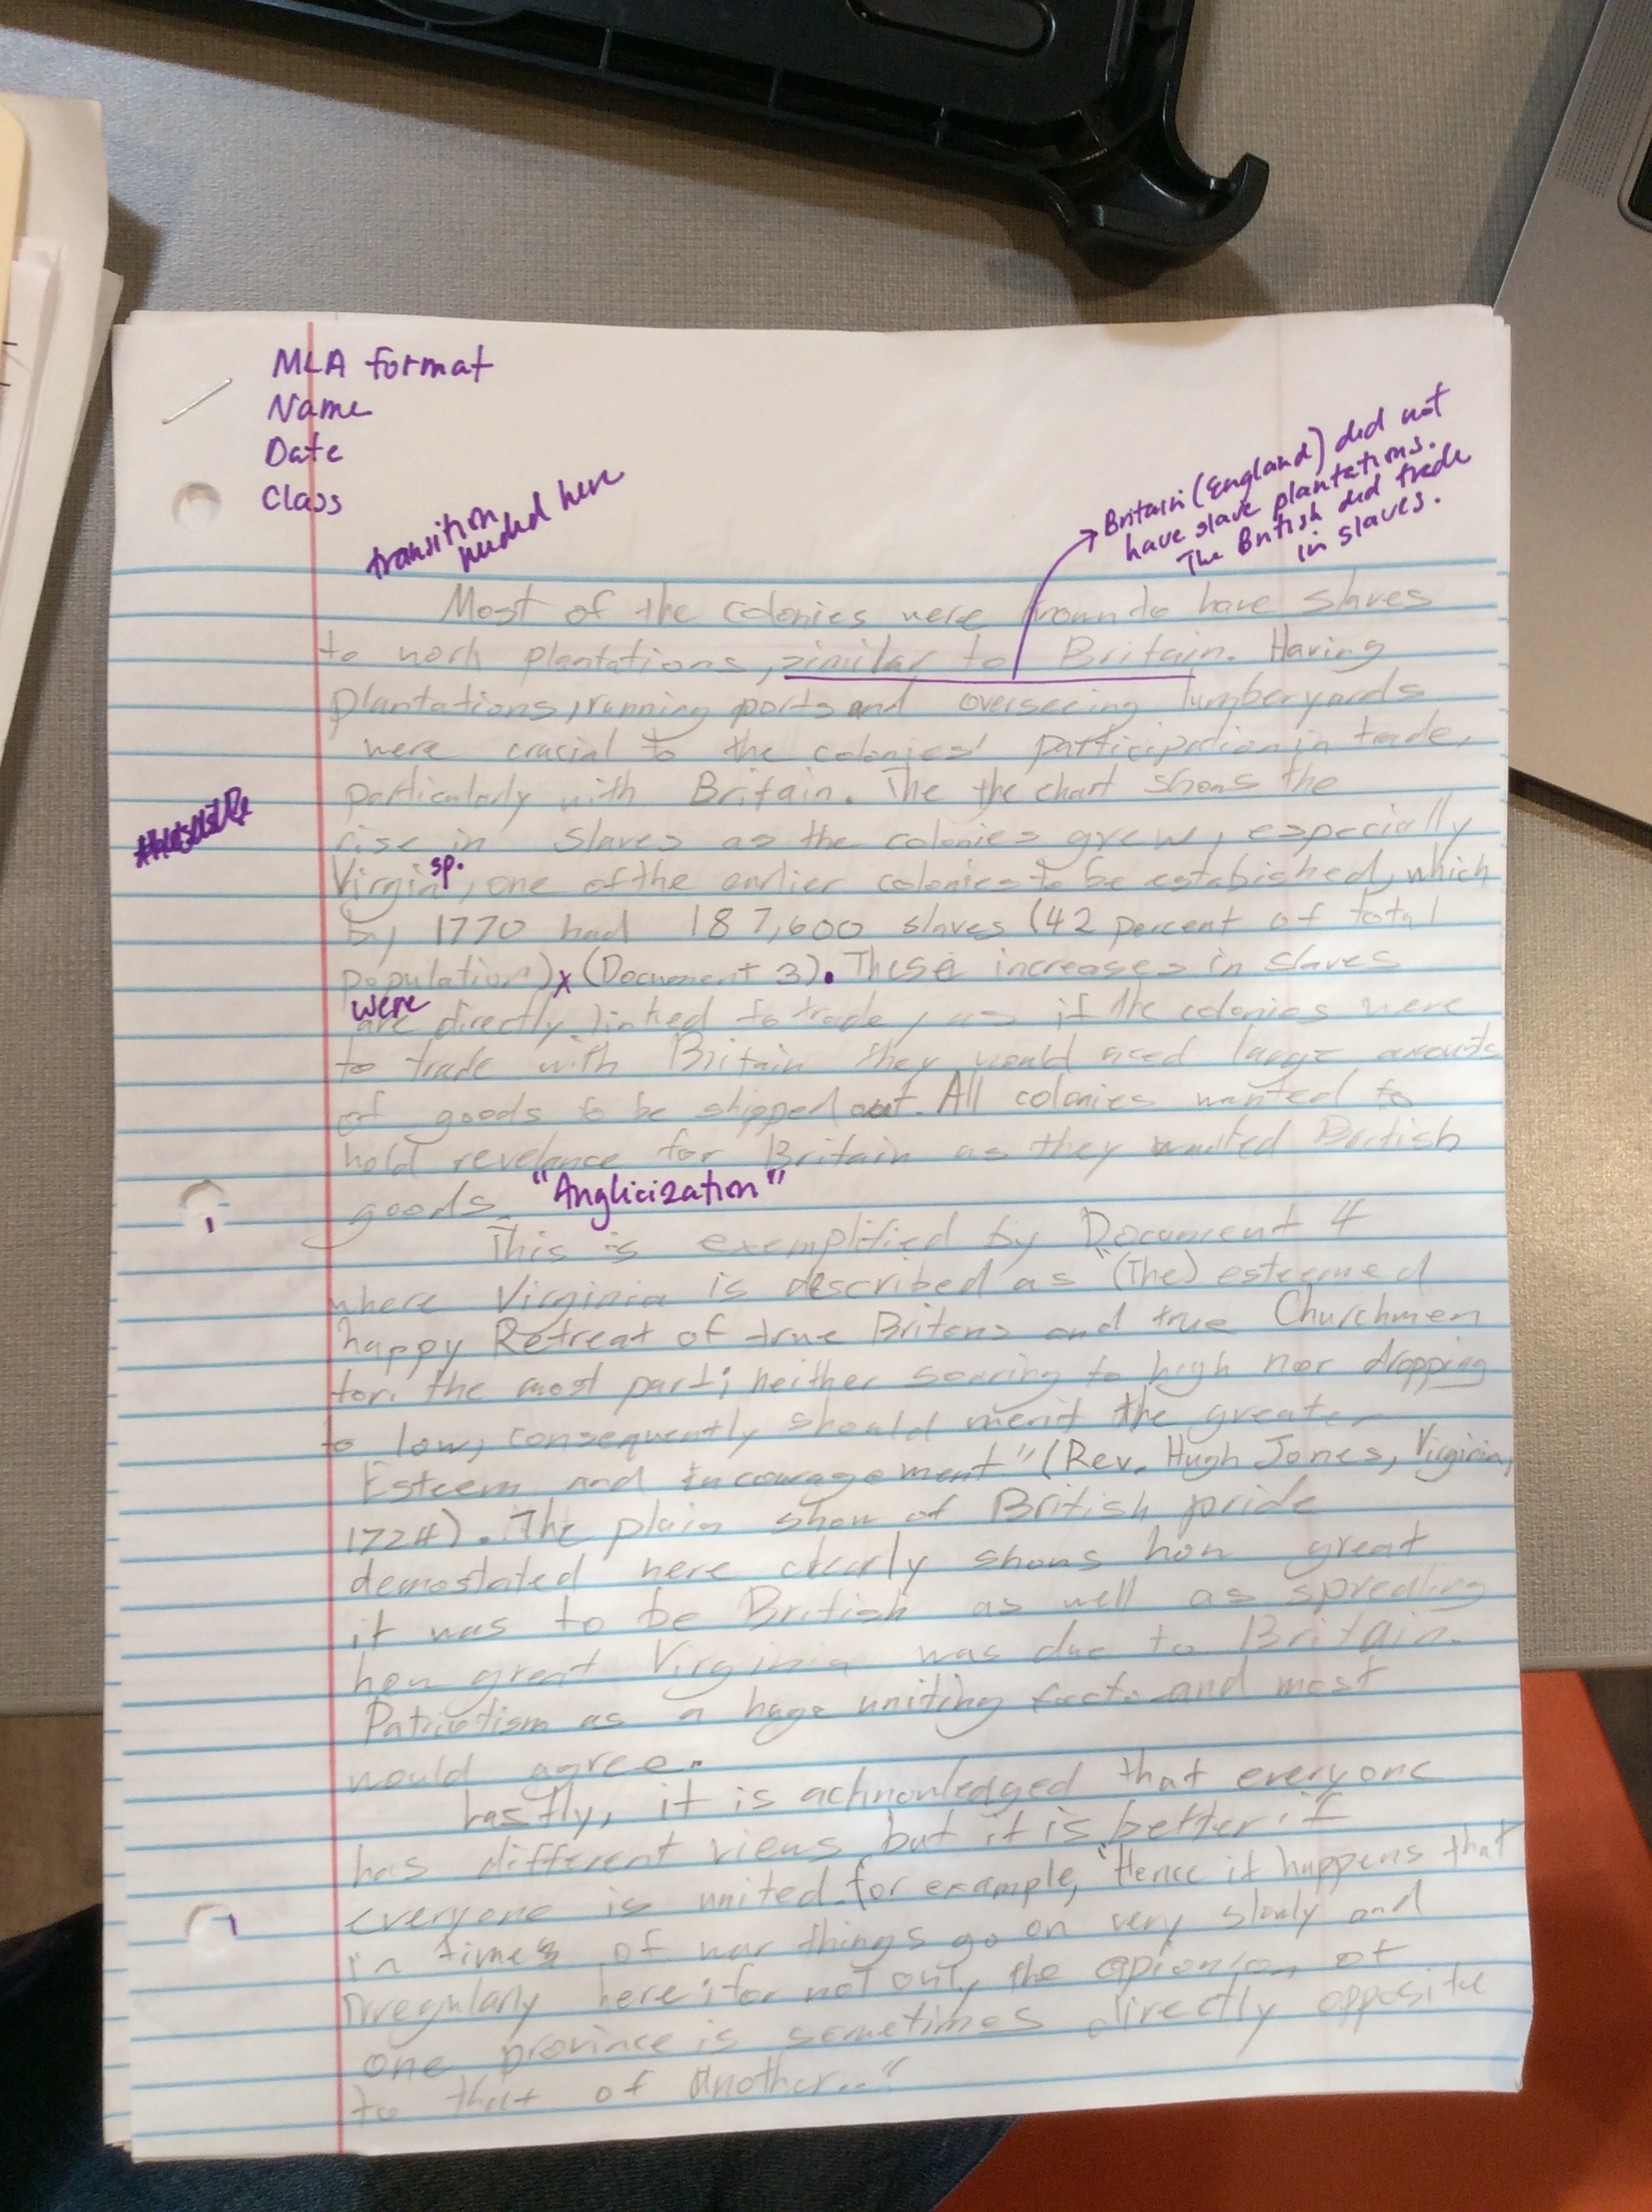 MLA format
Name
Date
Class
transition
needed here
Britain (England) did not
have slave plantations.
The British did trade
in slaves.
Most of the colonies were known to have slaves
to work plantations, similar to Britain. Having
plantations, running ports and overseeing lumberyards
were crucial to the colonies' participation in trade,
particularly with Britain. The the chart shows the
rise in slaves as the colonies grew, especially
sp.
Virgin, one of the earlier colonies to be estabished, which
by 1770 had 187,600 slaves (42 percent of total
population)x (Document 3). These increases in slaves
were
are directly linked to trade, as if the colonies were
to trade with Britain they would need large amounts
of goods to be shipped out. All colonies wanted to
hold revelance for Britain as they wanted British
goods. "Anglicization"
This is exemplified by Document 4
where Virginia is described as "(The) esteemed
happy Retreat of true Britons and true Churchmen
for the most part; neither soaring to high nor dropping
to low, consequently should merit the greater
Esteem and Encouragement" (Rev. Hugh Jones, Virginia,
1724). The plain show of British pride
demostated here clearly shows how great
it was to be British as well as spreading
how great Virginia was due to Britain.
Patriotism as a huge uniting factor and most
would agree.
Lastly, it is acknowledged that everyone
has different views but it is better if
everyone is united. for example, "Hence it happens that
in times of war things go on very slowly and
irregularly here: for not only the opionion of
one province is sometimes directly opposite
to that of another..."